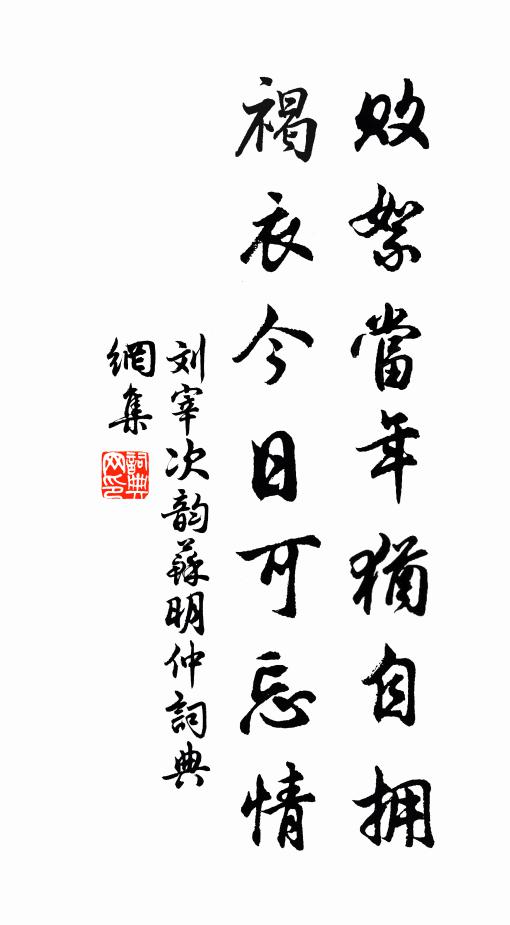 敗絮當年猶自拥
褐衣今日可忘情
刘宰次韵蘇明仲詞典
網集
詞典網印